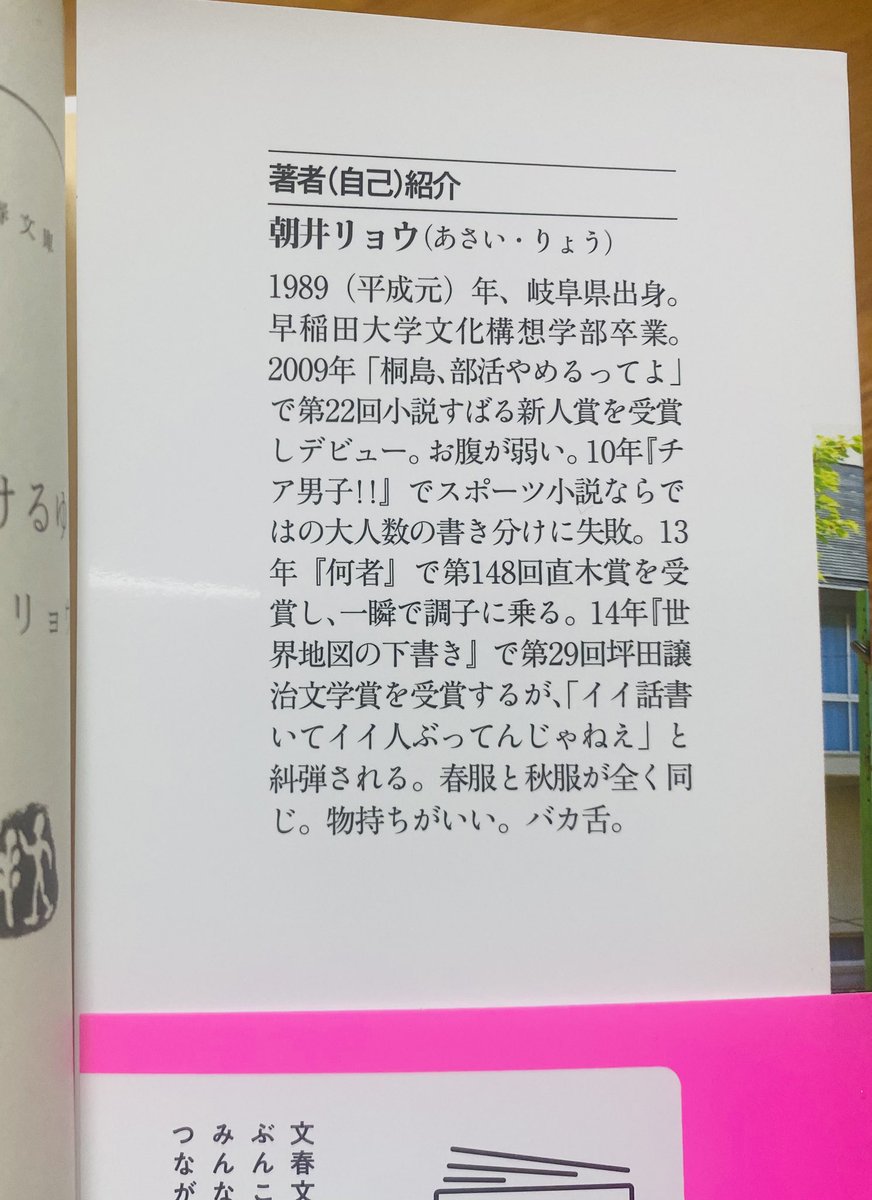 著者(自己)紹介
朝井リョウ(あさい・りょう)
1989(平成元)年、岐阜県出身。
早稲田大学文化構想学部卒業。
2009年「桐島、部活やめるってよ」
で第22回小説すばる新人賞を受賞
しデビュー。お腹が弱い。10年『チ
ア男子!!』でスポーツ小説ならで
はの大人数の書き分けに失敗。13
年『何者』で第148回直木賞を受
賞し、一瞬で調子に乗る。14年『世
界地図の下書き』で第29回坪田譲
治文学賞を受賞するが、「イイ話書
いてイイ人ぶってんじゃねえ」と
糾弾される。春服と秋服が全く同
じ。物持ちがいい。バカ舌。
文春文
ぶんこ
みんな
つなが
けるゆ
リョウ
文庫